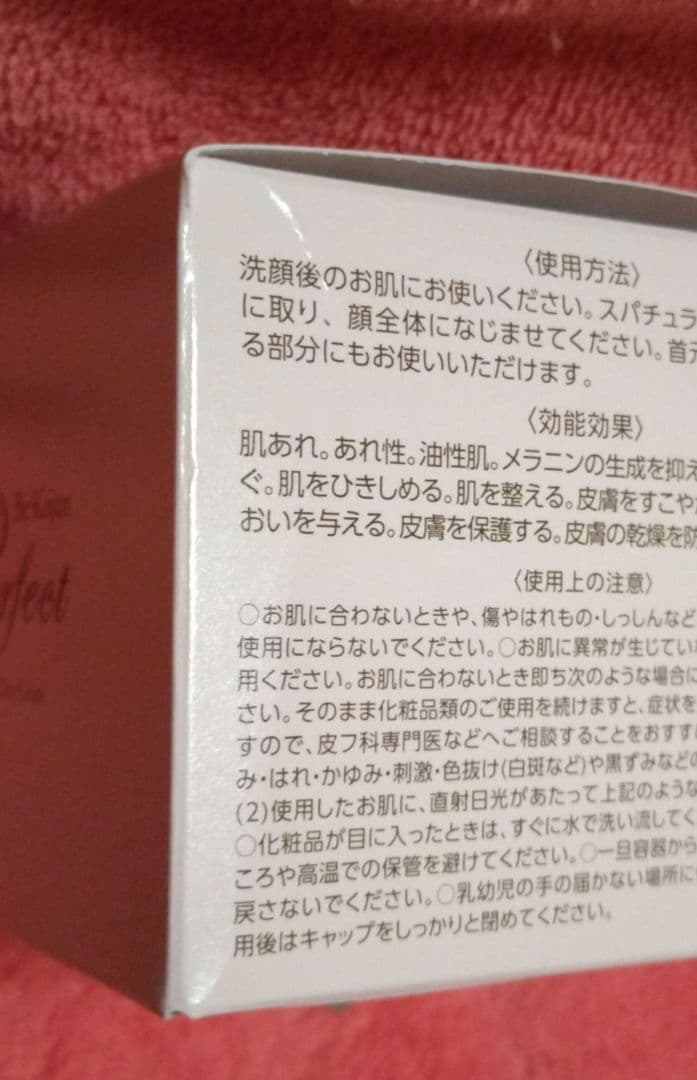 〈使用方法〉
洗顔後のお肌にお使いください。スパチュラ
に取り、顔全体になじませてください。首元
る部分にもお使いいただけます。
〈効能効果〉
肌あれ。あれ性。油性肌。メラニンの生成を抑え
ぐ。肌をひきしめる。肌を整える。皮膚をすこや
おいを与える。皮膚を保護する。皮膚の乾燥を防
〈使用上の注意〉
○お肌に合わないときや、傷やはれもの・しっしんなど
使用にならないでください。○お肌に異常が生じていな
用ください。お肌に合わないとき即ち次のような場合に
さい。そのまま化粧品類のご使用を続けますと、症状を
すので、皮フ科専門医などへご相談することをおすす
み・はれ・かゆみ・刺激・色抜け(白斑など)や黒ずみなどの
(2)使用したお肌に、直射日光があたって上記のような
○化粧品が目に入ったときは、すぐに水で洗い流してく
ころや高温での保管を避けてください。○一旦容器から
戻さないでください。○乳幼児の手の届かない場所に
用後はキャップをしっかりと閉めてください。
rfect